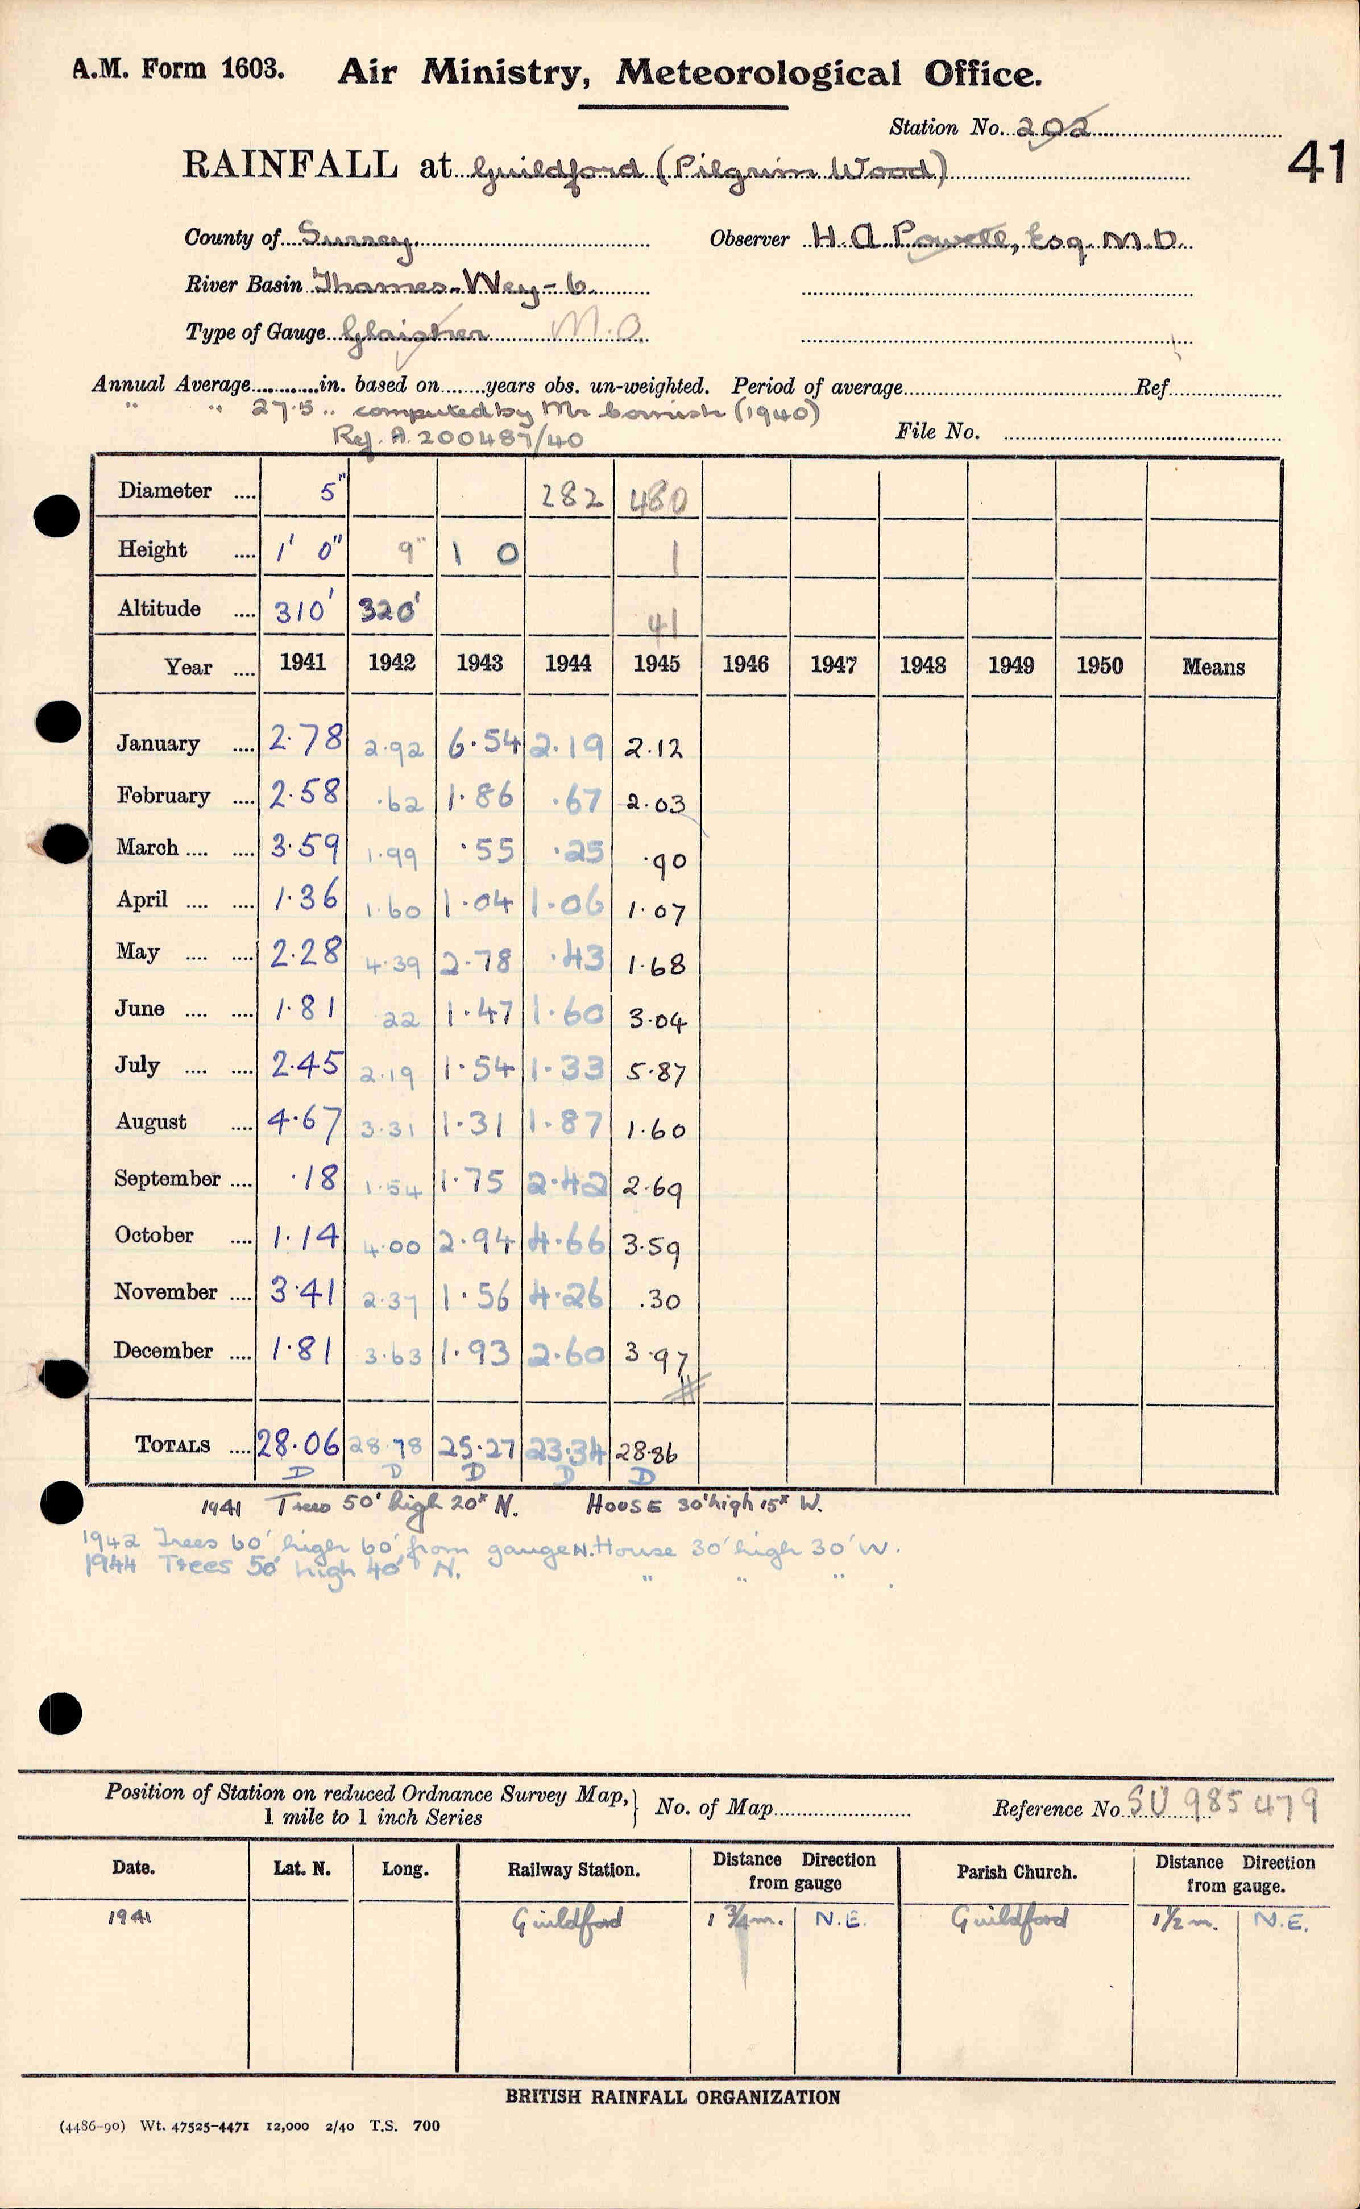 A.M. Form 1603. Air Ministry, Meteorological Office.
Station No. 202
41
RAINFALL at Guildford (Pilgrim Wood)
County of Surrey. Observer H. A. Powell, Esq. M.D.
River Basin Thames-Wey-6.
Type of Gauge Glaisher M.O.
Annual Average in. based on years obs. un-weighted. Period of average Ref.
" " 27.5 .. computed by Mr Cornish (1940)
Ref. A. 200487/40
File No.
Diameter .... 5" 282 480
Height .... 1' 0" 9" 1 0 1
Altitude .... 310' 320' 41
Year .... 1941 1942 1943 1944 1945 1946 1947 1948 1949 1950 Means
January .... 2.78 2.92 6.54 2.19 2.12
February .... 2.58 .62 1.86 .67 2.03
March .... .... 3.59 1.99 .55 .25 .90
April .... .... 1.36 1.60 1.04 1.06 1.07
May .... .... 2.28 4.39 2.78 .43 1.68
June .... .... 1.81 .22 1.47 1.60 3.04
July .... .... 2.45 2.19 1.54 1.33 5.87
August .... 4.67 3.31 1.31 1.87 1.60
September .... .18 1.54 1.75 2.42 2.69
October .... 1.14 4.00 2.94 4.66 3.59
November .... 3.41 2.37 1.56 4.26 .30
December .... 1.81 3.63 1.93 2.60 3.97
TOTALS .... 28.06 28.78 25.27 23.34 28.86
D D D D D
1941 Trees 50' high 20ˣ N. HOUSE 30' high 15ˣ W.
1942 Trees 60' high 60' from gauge N. House 30' high 30' W.
1944 Trees 50' high 40' N. " " " .
Position of Station on reduced Ordnance Survey Map, 1 mile to 1 inch Series } No. of Map Reference No. SU 985 479
Date. Lat. N. Long. Railway Station. Distance Direction from gauge Parish Church. Distance Direction from gauge.
1941 Guildford 1 3/4 m. N.E. Guildford 1 1/2 m. N.E.
BRITISH RAINFALL ORGANIZATION
(4486-90) Wt. 47525-4471 12,000 2/40 T.S. 700